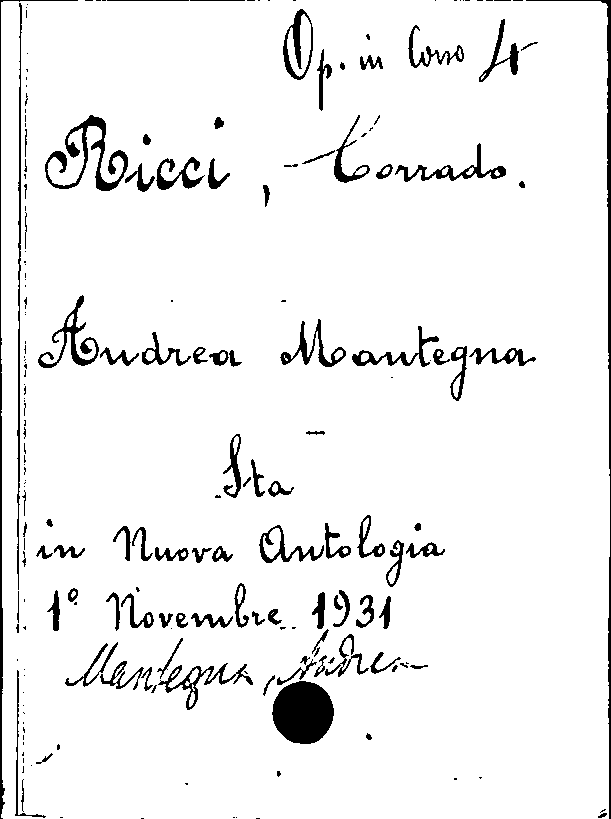 Op. in Corso 4
Ricci, Corrado.
Andrea Mantegna
-
Sta
in Nuova Antologia
1° Novembre 1931
Mantegna, Andrea